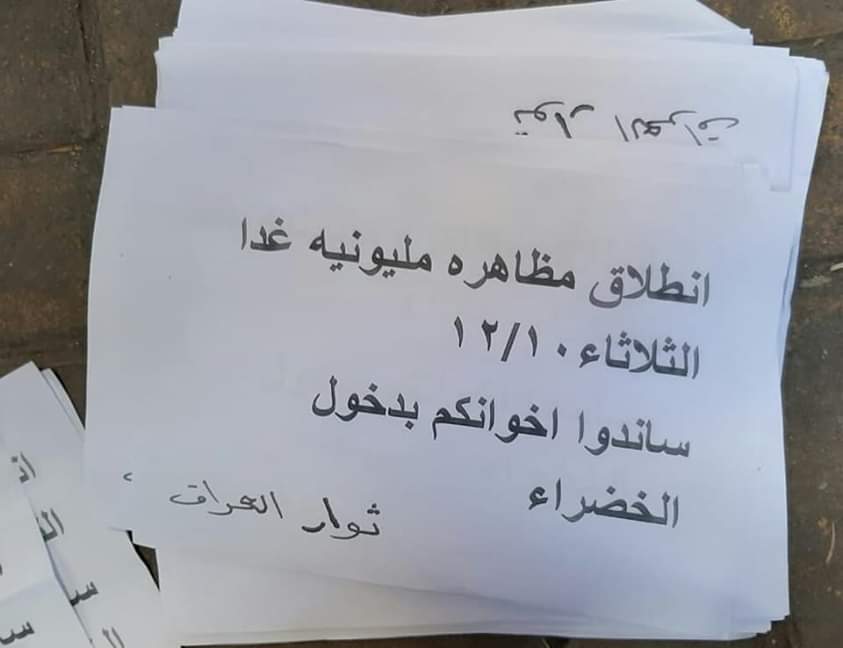 ثوار العراق
انطلاق مظاهره مليونيه غدا
الثلاثاء١٢/١٠
ساندوا اخوانكم بدخول
الخضراء
ثوار العراق